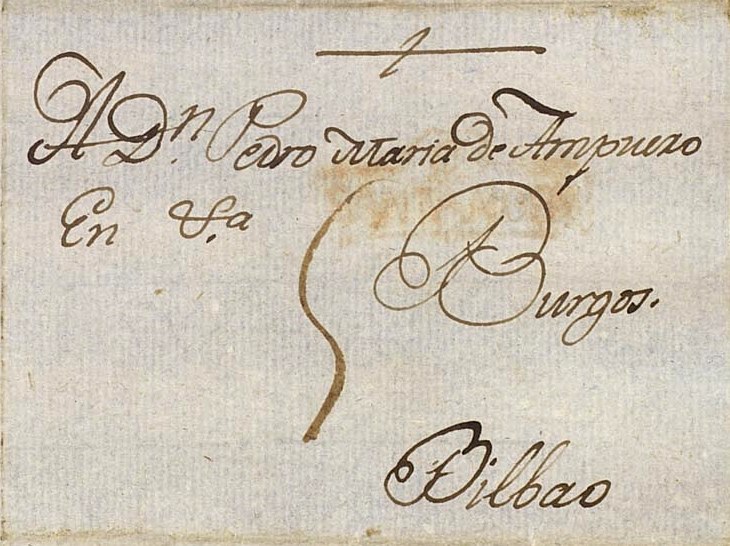 A Dn. Pedro Maria de Ampuero
En &.a
Burgos.
Bilbao